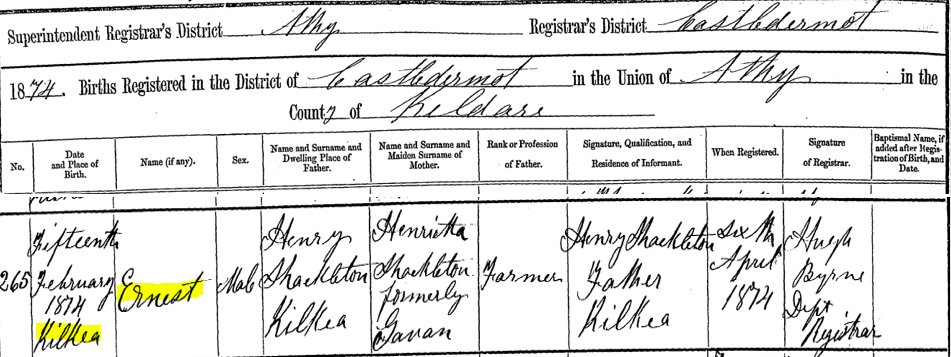 Superintendent Registrar's District Athy Registrar's District Castledermot
1874. Births Registered in the District of Castledermot in the Union of Athy in the
County of Kildare
No. Date and Place of Birth. Name (if any). Sex. Name and Surname and Dwelling Place of Father. Name and Surname and Maiden Surname of Mother. Rank or Profession of Father. Signature, Qualification, and Residence of Informant. When Registered. Signature of Registrar. Baptismal Name, if added after Registration of Birth, and Date.
265
Fifteenth
February
1874
Kilkea
Ernest
Male
Henry
Shackleton
Kilkea
Henrietta
Shackleton
formerly
Gavan
Farmer
Henry Shackleton
Father
Kilkea
Sixth
April
1874
Hugh
Byrne
Dept
Registrar